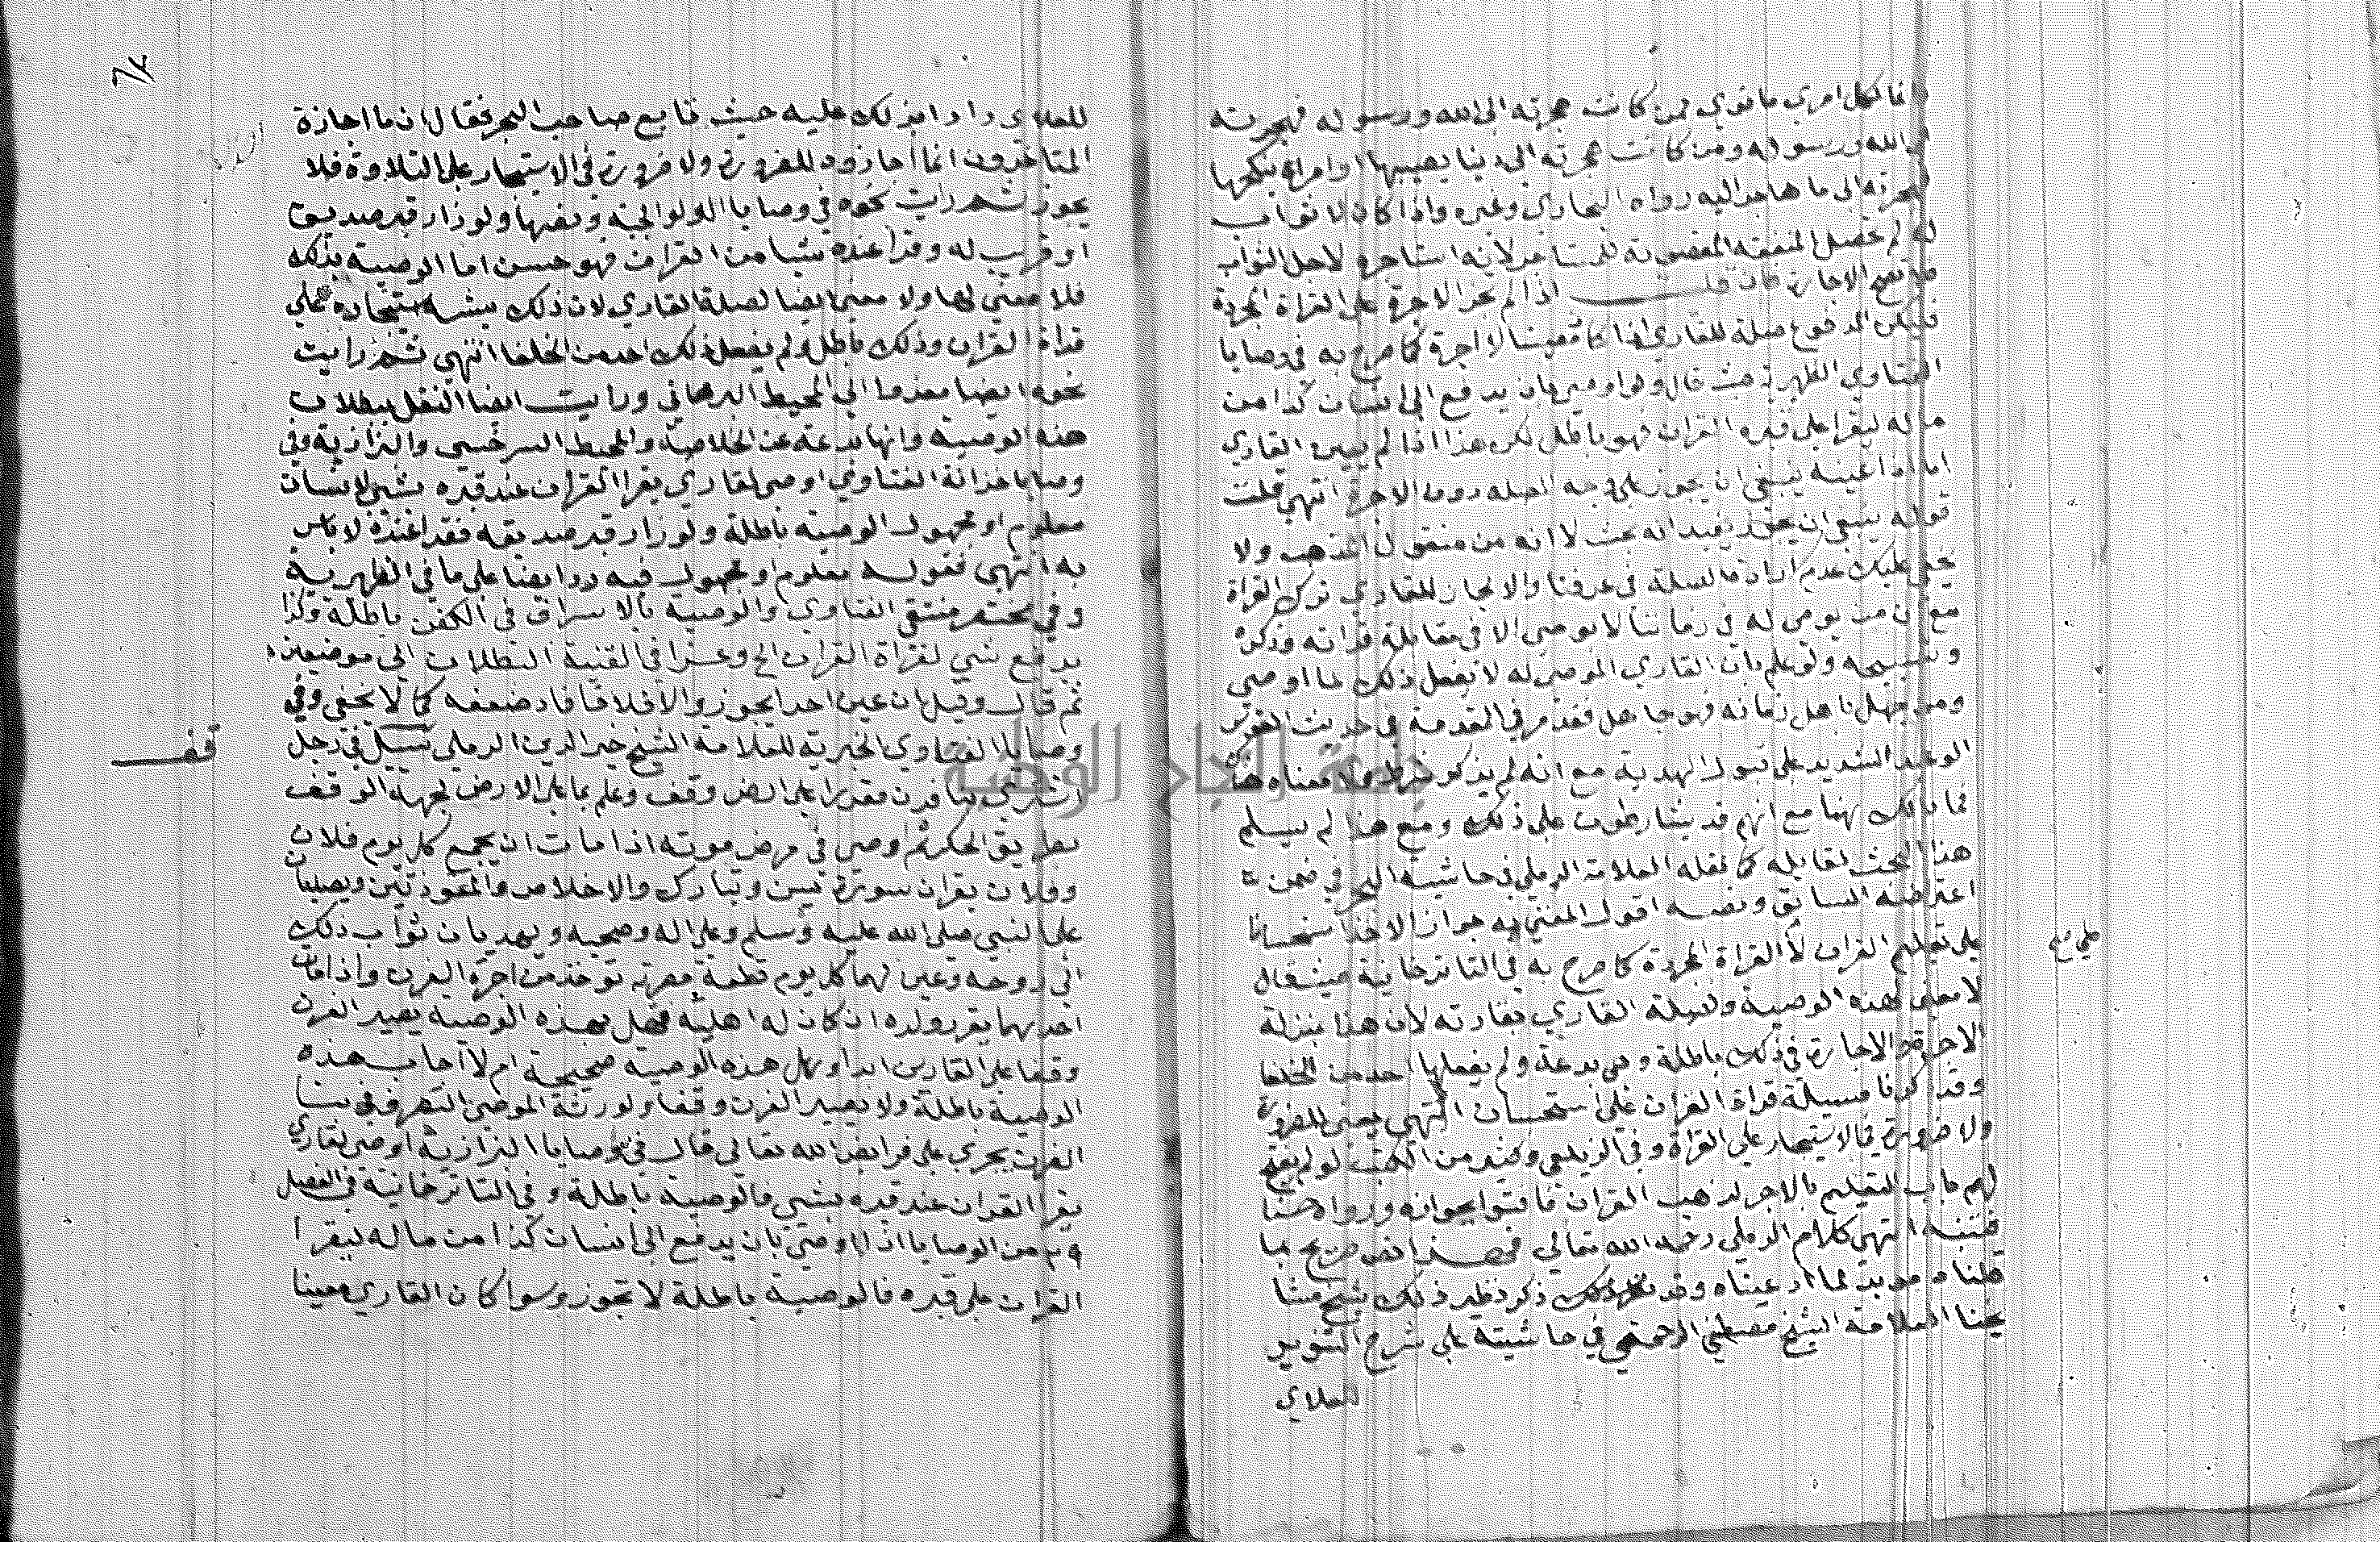 وانما لكل امرئ ما نوى فمن كانت هجرته الى الله ورسوله فهجرته
الى الله ورسوله ومن كانت هجرته الى دنيا يصيبها او امراة ينكحها
فهجرته الى ما هاجر اليه رواه البخاري وغيره واذا كان لا ثواب
له لم تحصل المنفعة المقصودة للمستاجر لانه استاجره لاجل الثواب
فلا تصح الاجارة فان قلت اذا لم تجز الاجرة على القراة المجردة
فليكن المدفوع صلة للقاري اذا كان معينا لا اجرة كما صرح به في وصايا
الفتاوي الظهيرية حيث قال ولو اوصى بان يدفع الى انسان كذا من
ماله ليقرا على قبره القران فهو باطل لكن هذا اذا لم يعين القاري
اما اذا عينه ينبغي ان يجوز على وجه الصلة دون الاجرة انتهى قلت
قوله ينبغي ان يجوز يفيد انه بحث لا انه من منقول المذهب ولا
يخفى عليك عدم ارادة الصلة في عرفنا والا لجاز للقاري ترك القراة
مع ان من يوصى له في زماننا لا يوصي الا في مقابلة قراته وذكره
وتسبيحه ولو علم بان القاري الموصى له لا يفعل ذلك لما اوصى
ومن جهل باهل زمانه فهو جاهل فقد مر في المقدمة في حديث القوس
الوعيد الشديد على قبول الهدية مع انه لم يذكر شرط ولا معناه هناك
فما بالك بهنا مع انهم قد يتشارطون على ذلك ومع هذا لم يسلم
هذا البحث لقايله كما نقله العلامة الرملي في حاشية البحر في ضمن
اعتراضه السابق ونصه اقول المفتي به جواز الاخذ استحسانا
على تعليم القران لا القراة المجردة كما صرح به في التاترخانية حيث قال
لا معنى لهذه الوصية ولصلة القاري بقراته لان هذا بمنزلة
الاجرة والاجارة في ذلك باطلة وهي بدعة ولم يفعلها احد من الخلفا
وقد ذكرنا مسيلة قراة القران على استحسان انتهى يعني للضرورة
ولا ضرورة في الاستيجار على القراة وفي الزيلعي وكثير من الكتب لو لم يفتح
لهم باب التعليم بالاجر لذهب القران فافتوا بجوازه وراوه حسنا
فتنبه انتهى كلام الرملي رحمه الله تعالى فهذا نص صريح بما
قلناه مويد لما ادعيناه وقد ذكر نظير ذلك شيخ مشا
يخنا العلامة الشيخ مصطفى الرحمتي في حاشيته على شرح التنوير
للعلاي
للعلاي رادا بذلك عليه حيث تابع صاحب البحر فقال ان ما اجازه
المتاخرون انما اجازوه للضرورة ولا ضرورة في الاستيجار على التلاوة فلا
يجوز ثم رايت نحوه في وصايا الولوالجية ونصها ولو زار قبر صديق
او قريب له وقرا عنده شيا من القران فهو حسن اما الوصية بذلك
فلا معنى لها ولا معنى ايضا لصلة القاري لان ذلك يشبه استيجاره على
قراة القران وذلك باطل ولم يفعل ذلك احد من الخلفا انتهى ثم رايت
نحوه ايضا معزوا الى المحيط البرهاني ورايت ايضا النقل ببطلان
هذه الوصية وانها بدعة عن الخلاصة والمحيط السرخسي والبزازية وفي
وصايا خزانة الفتاوي اوصى لقاري يقرا القران عند قبره بشي لانسان
معلوم او مجهول الوصية باطلة ولو زار قبر صديقه فقرا عنده لا باس
به انتهى فقوله معلوم او مجهول فيه رد ايضا على ما في الظهيرية
وفي مختصر منتقى الفتاوي والوصية بالاسراف في الكفن باطلة وكذا
بدفع شي لقراة القران الخ وعزا في القنية البطلان الى موضعين
ثم قال وقيل ان عين احدا يجوز والا فلا فافاد ضعفه كما لا يخفى وفي
وصايا الفتاوي الخيرية للعلامة الشيخ خير الدين الرملي سئل في رجل
اشترى بيتا فرن مقررا على ارض وقف وعلم ما على الارض لجهة الوقف
بطريق الحكر ثم اوصى في مرض موته اذا مات ان يجمع كل يوم فلان
وفلان يقران سورة يس وتبارك والاخلاص والمعوذتين ويصليان
على النبي صلى الله عليه وسلم وعلى اله وصحبه ويهديان ثواب ذلك
الى روحه وعين لهما كل يوم قطعة مصرية توخذ من اجرة الفرن واذا مات
احدهما يقرر ولده ان كان له اهلية فهل بهذه الوصية يصير الفرن
وقفا على القارئين ابدا وهل هذه الوصية صحيحة ام لا اجاب هذه
الوصية باطلة ولا يصير الفرن وقفا ولورثة الموصي التصرف في بنا
الفرن يجري على فرايض الله تعالى قال في وصايا البزازية اوصى لقاري
يقرا القران عند قبره بشي فالوصية باطلة وفي التاترخانية في الفصل
٢٩ من الوصايا اذا اوصى بان يدفع الى انسان كذا من ماله ليقرا
القران على قبره فالوصية باطلة لا تجوز وسوا كان القاري معينا
قف